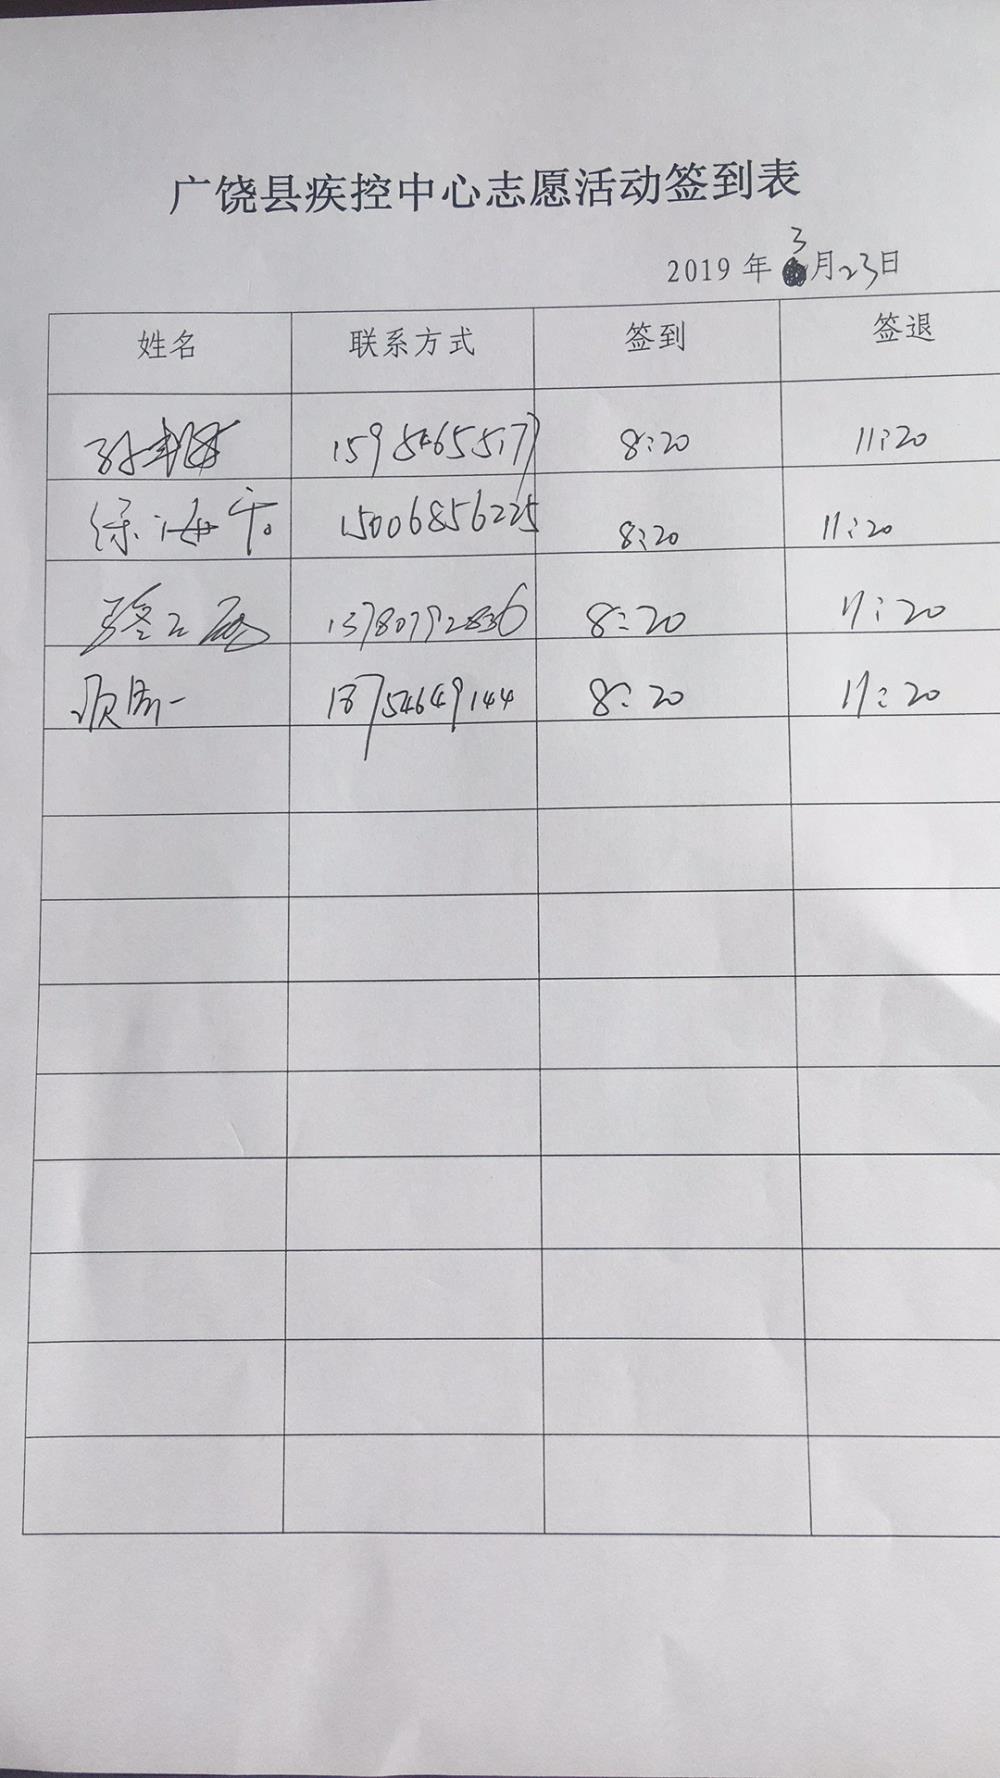 广饶县疾控中心志愿活动签到表
2019 年 3月23日
姓名 联系方式 签到 签退
15954655177 8:20 11:20
徐海 15006856225 8:20 11:20
13780792836 8:20 11:20
18754649144 8:20 11:20